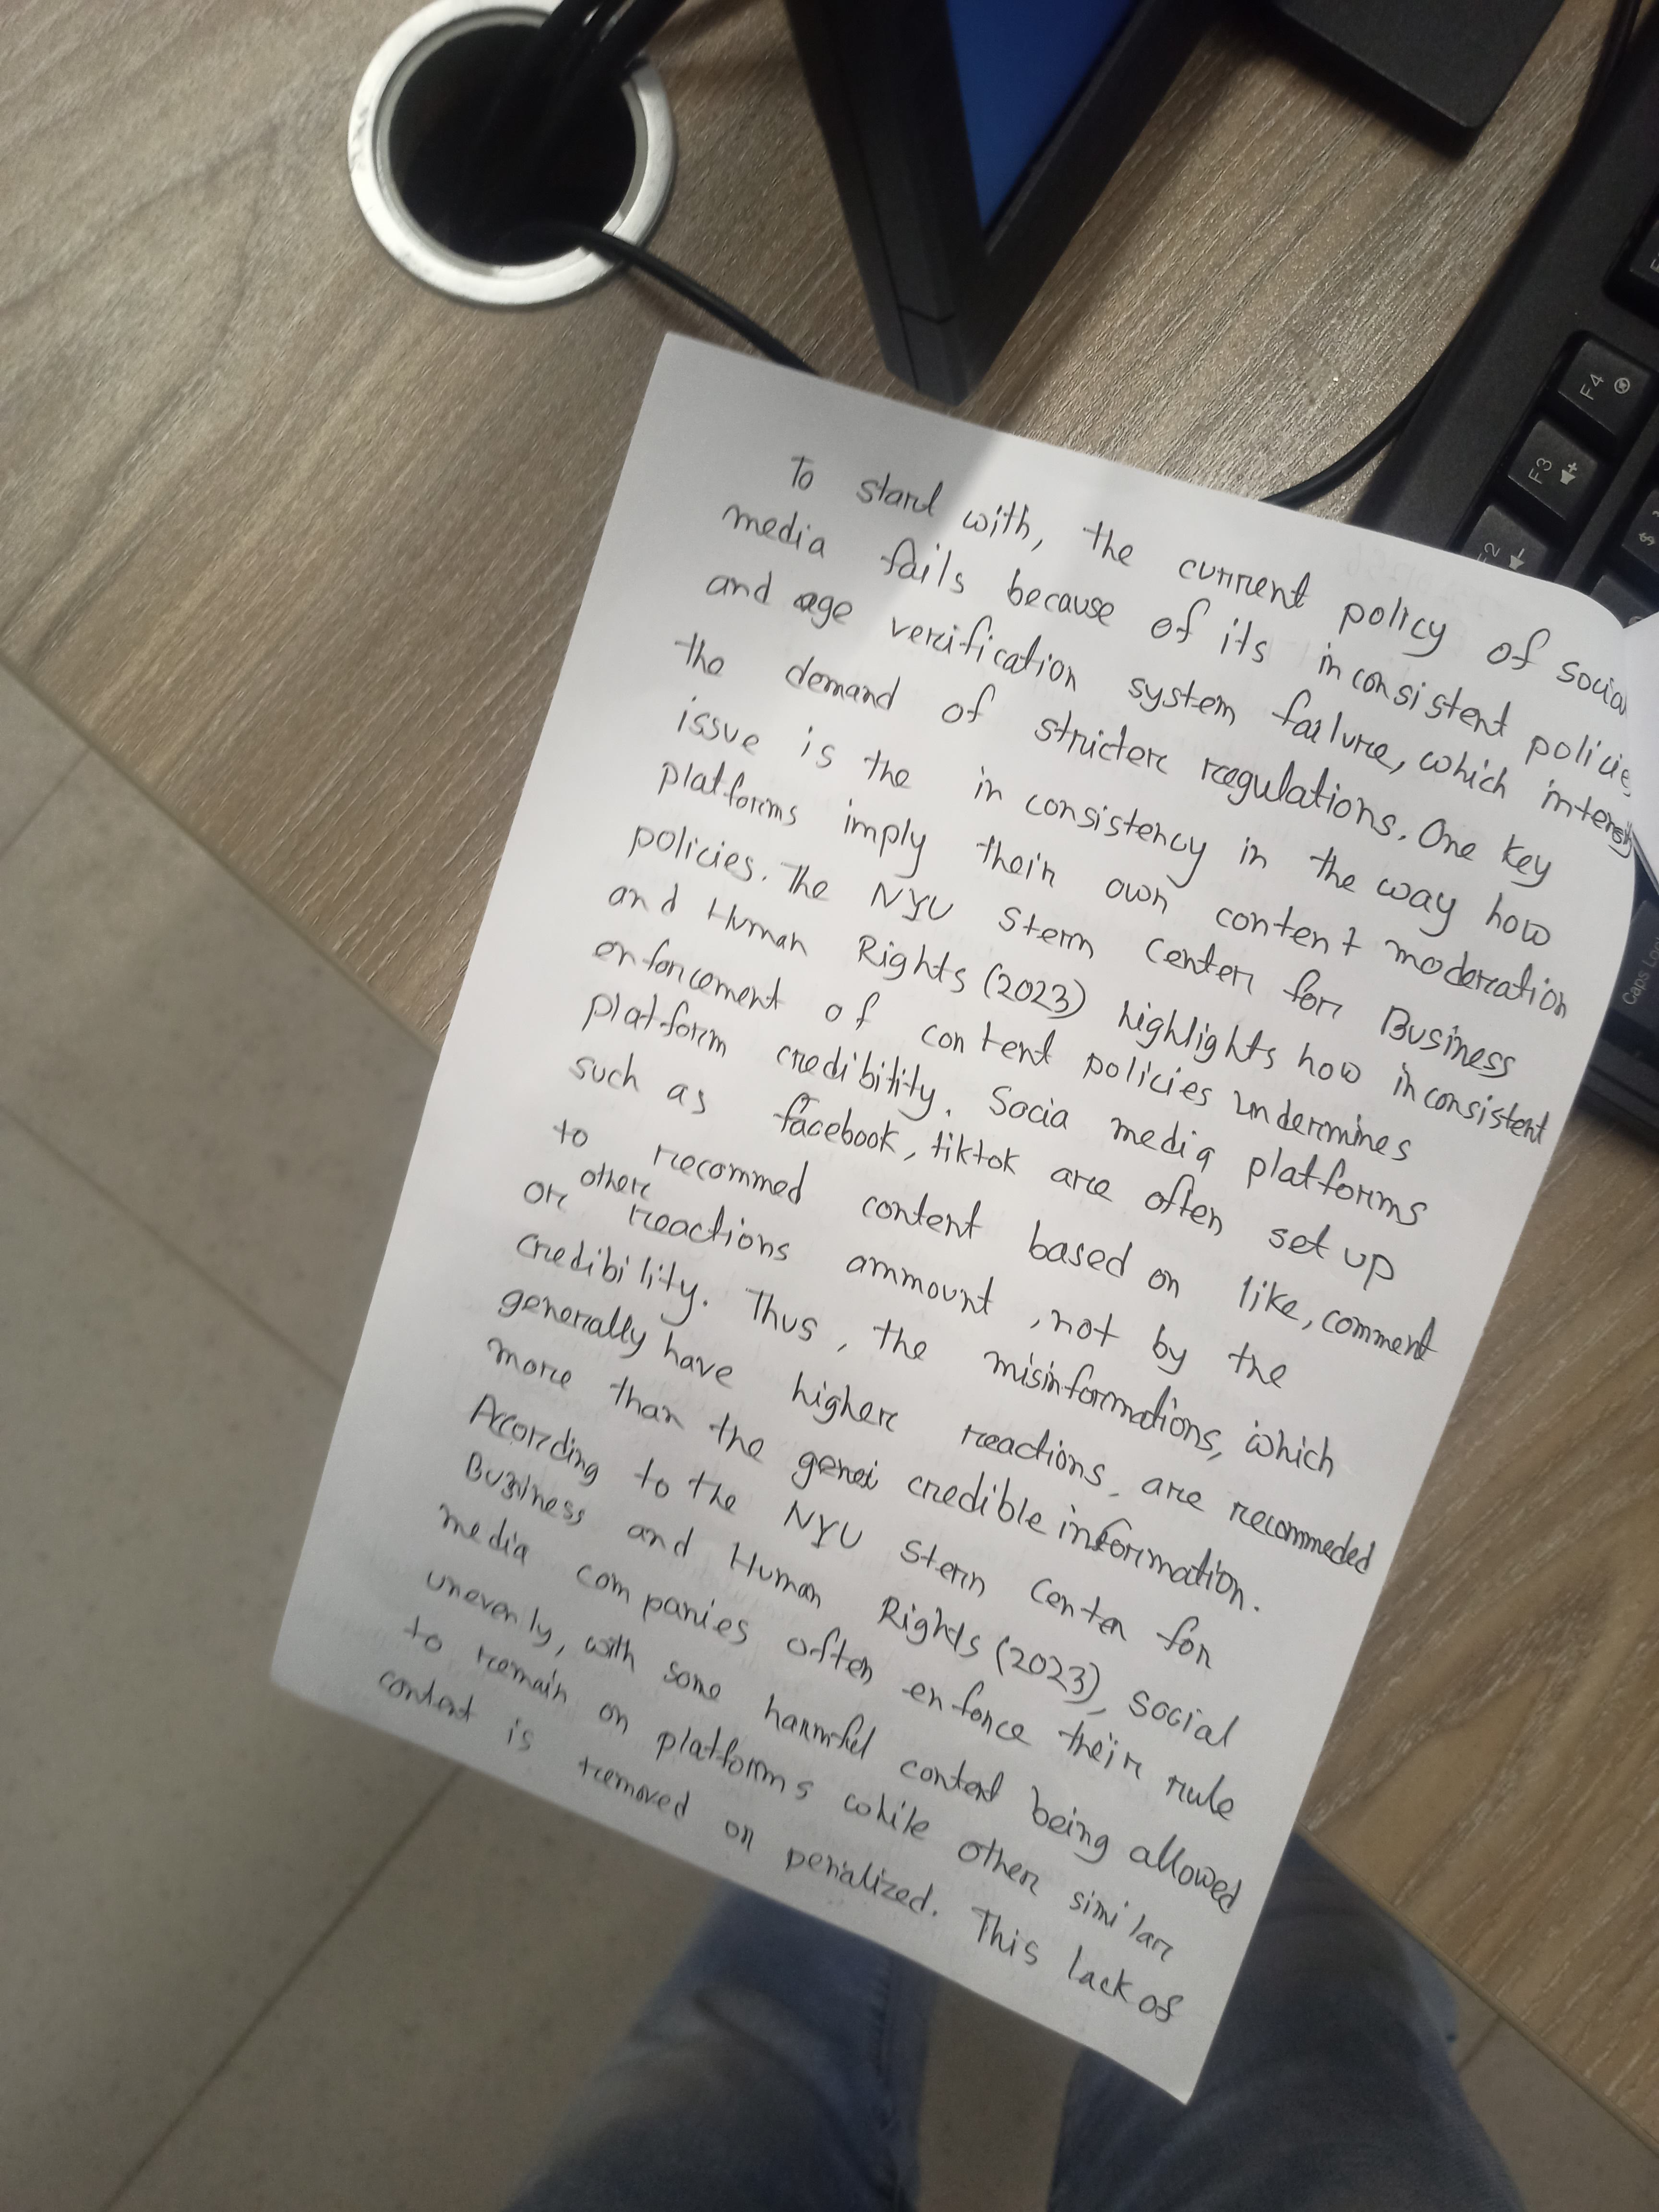 To start with, the current policy of social
media fails because of its inconsistent policies
and age verification system failure, which
the demand of stricter regulations. One key
issue is the inconsistency in the way how
platforms imply their own content moderation
policies. The NYU Stern Center for Business
and Human Rights (2023) highlights how inconsistent
enforcement of content policies undermines
platform credibility. Socia media platforms
such as facebook, tiktok are often set up
to recommed content based on like, comment
or other reactions ammount, not by the
credibility. Thus, the misinformations, which
generally have higher reactions, are recommeded
more than the credible information.
According to the NYU Stern Center for
Business and Human Rights (2023), social
media companies often enforce their rule
unevenly, with some harmful content being allowed
to remain on platforms while other similar
content is removed or penalized. This lack of
F4
F3
F2
Caps Lock